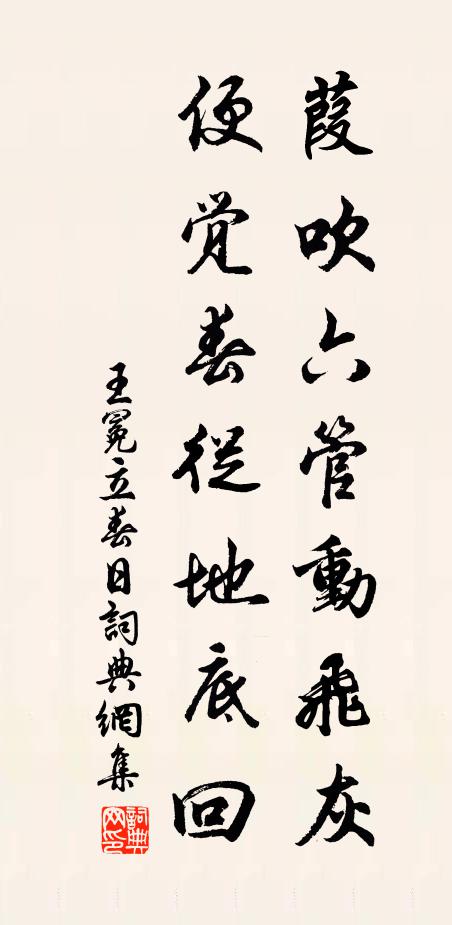 葭吹六管動飛灰
便覺春從地底回
王冕立春日詞典網集
詞典網印